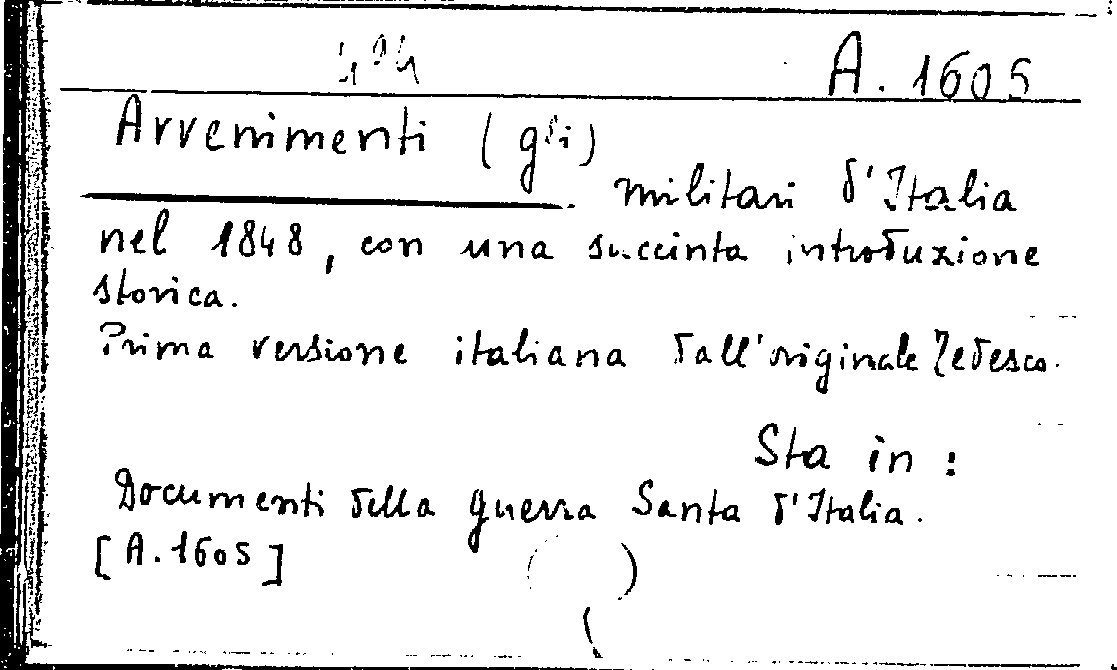 A. 1605
Avvenimenti (gli)
militari d'Italia
nel 1848, con una succinta introduzione
storica.
Prima versione italiana dall'originale Tedesco.
Sta in:
Documenti della guerra Santa d'Italia.
[A. 1605]